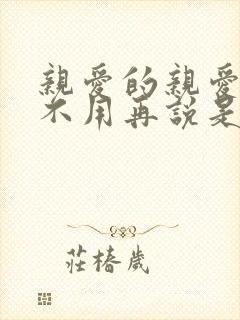 親愛的親愛
不用再說是
莊椿歲